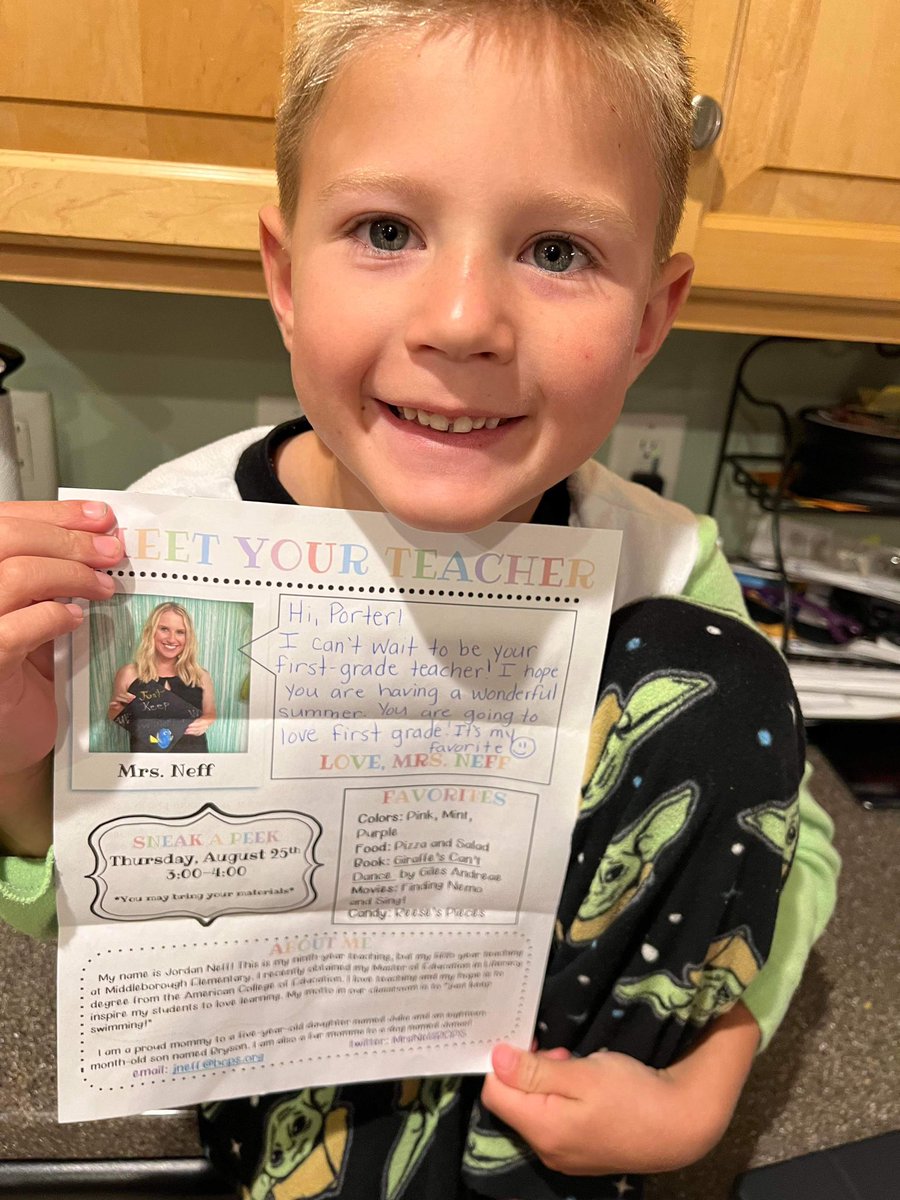 MEET YOUR TEACHER
Just
Keep
Mrs. Neff
Hi, Porter!
I can't wait to be your
first-grade teacher! I hope
you are having a wonderful
summer. You are going to
love first grade! It's my
favorite
LOVE, MRS. NEFF
SNEAK A PEEK
Thursday, August 25th
3:00-4:00
*You may bring your materials*
FAVORITES
Colors: Pink, Mint,
Purple
Food: Pizza and Salad
Book: Giraffe's Can't
Dance by Giles Andreae
Movies: Finding Nemo
and Sing!
Candy: Reese's Pieces
ABOUT ME
My name is Jordan Neff! This is my ninth year teaching, but my fifth year teaching
at Middleborough Elementary. I recently obtained my Master of Education in Literacy
degree from the American College of Education. I love teaching and my hope is to
inspire my students to love learning. My motto in our classroom is to "just keep
swimming!"
I am a proud mommy to a five-year-old daughter named and an eighteen-
month-old son named Bryson. I am also a fur momma to a dog named
email: jneff@bcps.org
twitter: